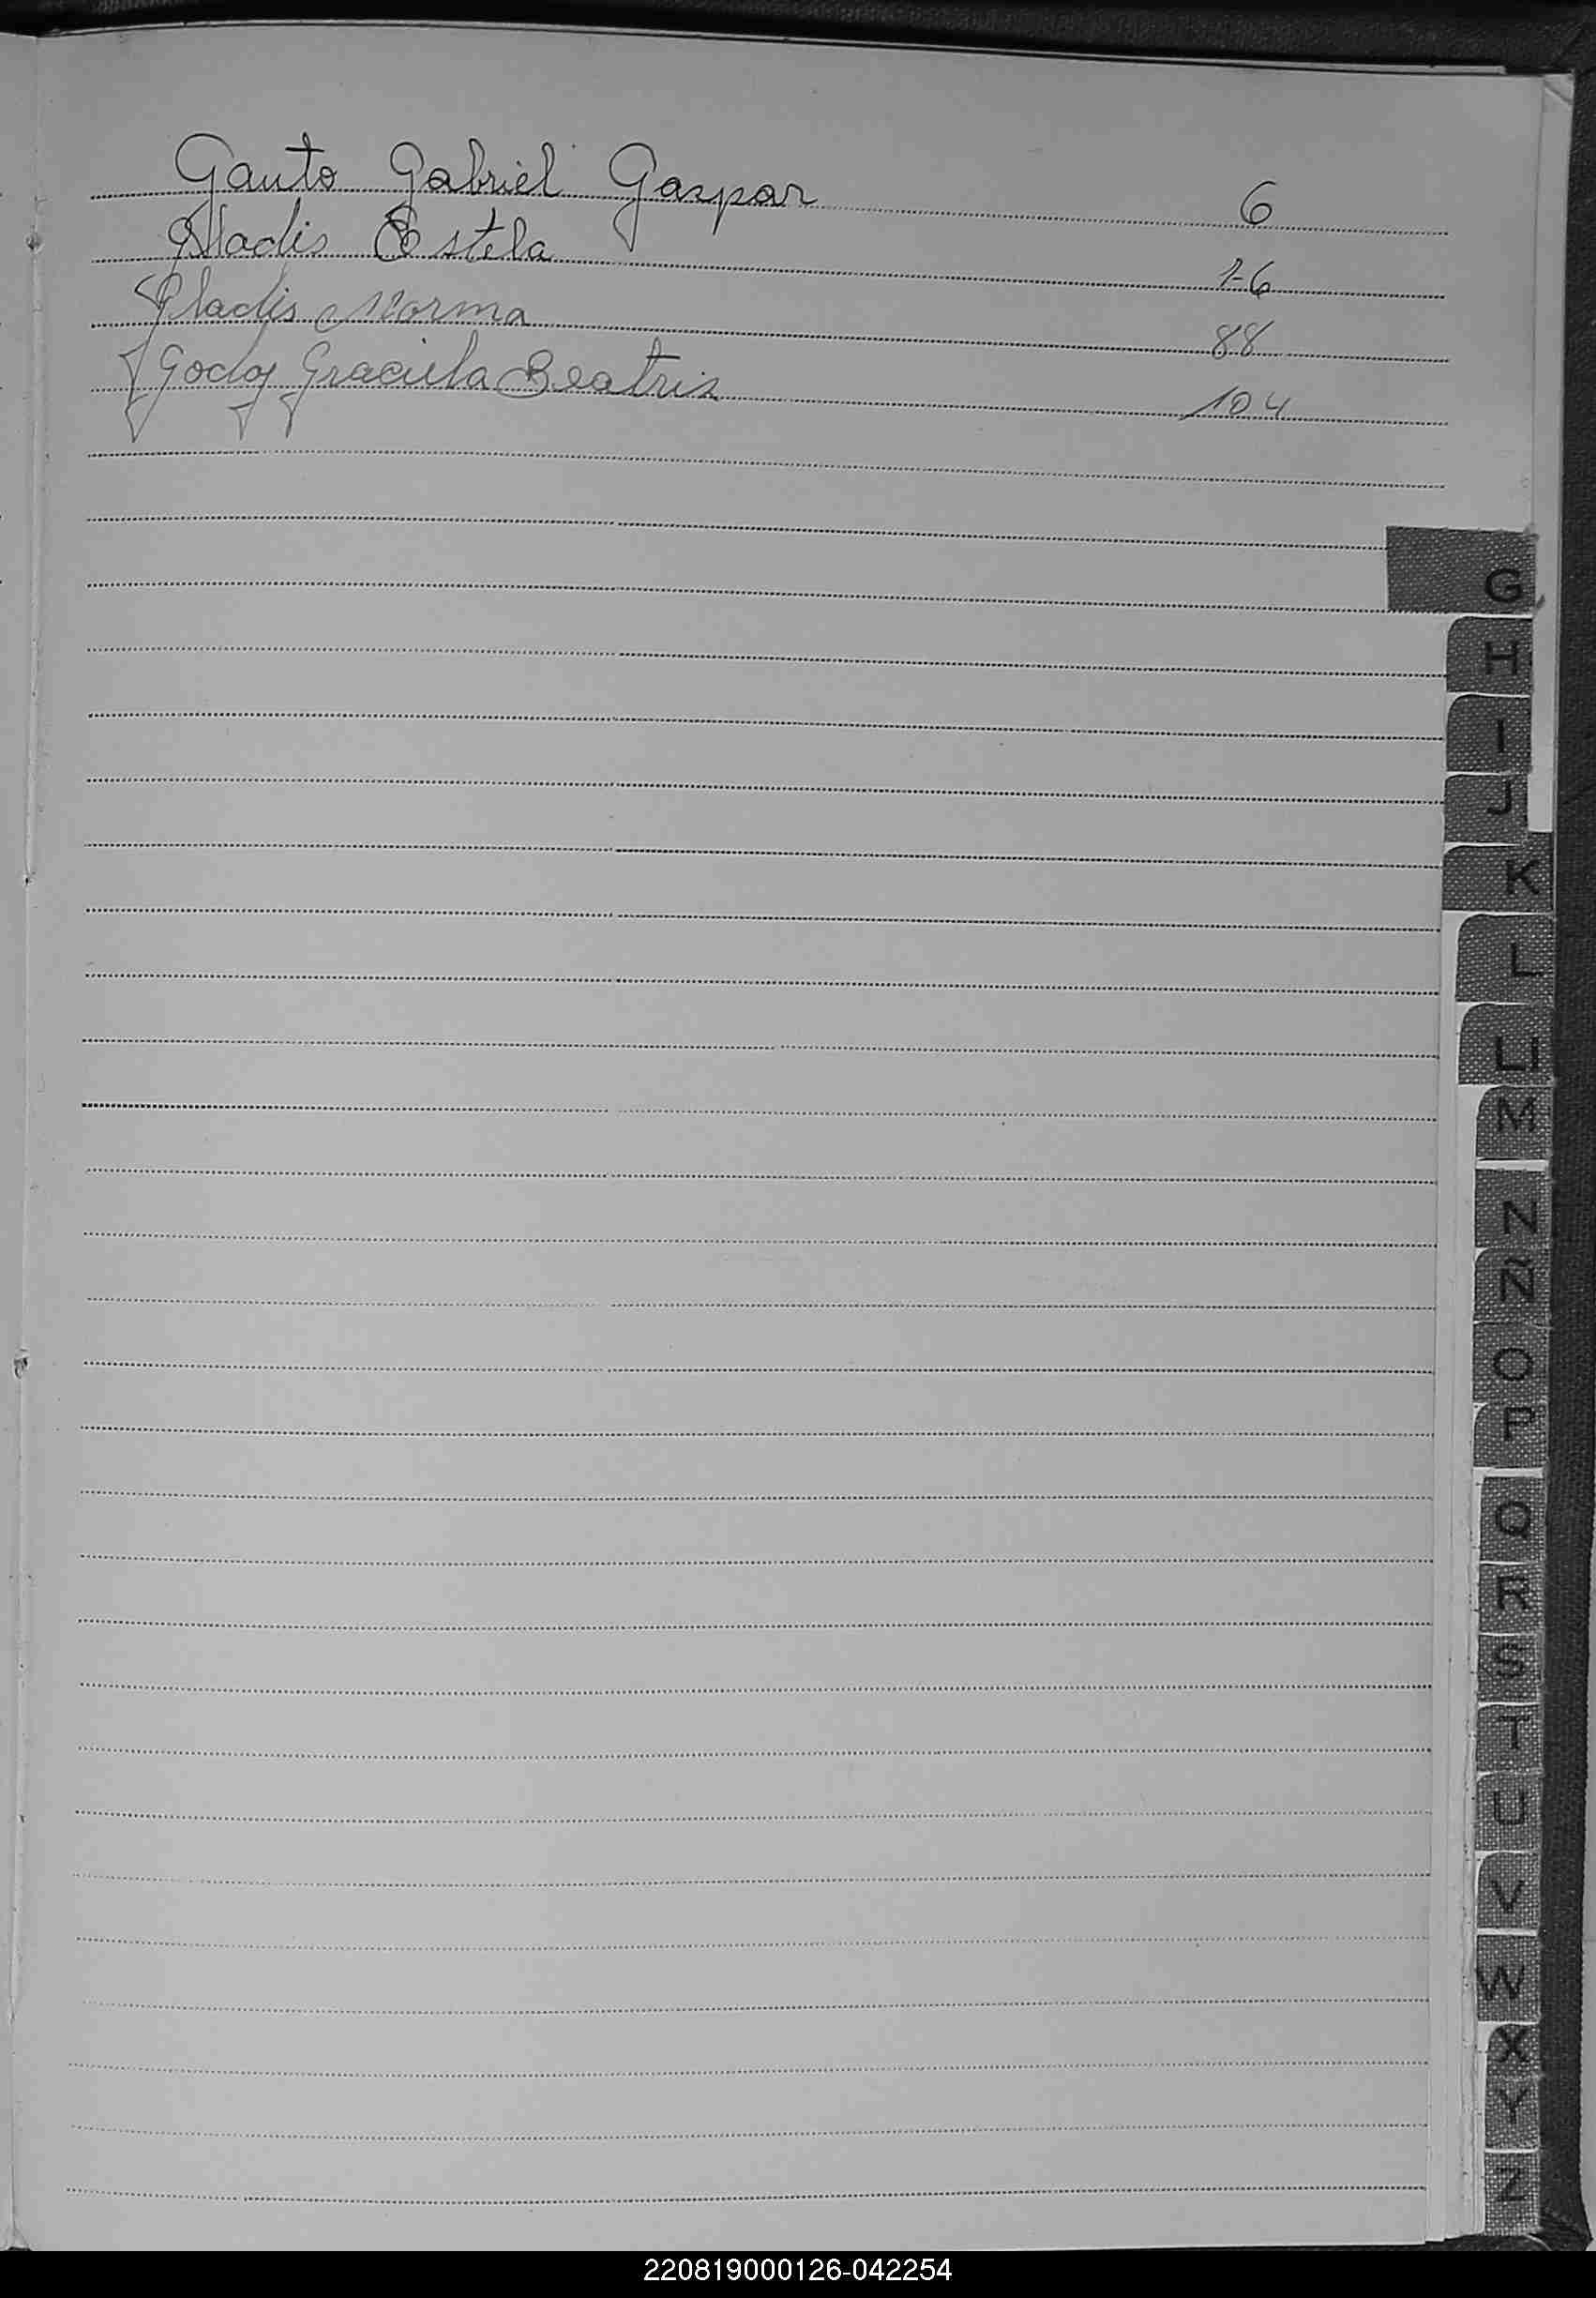 Gauto Gabriel Gaspar 6
Gladis Estela 76
Gladis Norma 88
Godoy Graciela Beatriz 104
G
H
I
J
K
L
LL
M
N
Ñ
O
P
Q
R
S
T
U
V
W
X
Y
Z
220819000126-042254